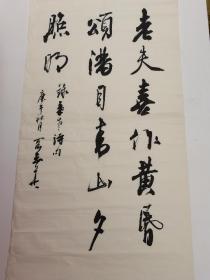 老夫喜作黄昏
颂满目青山夕
照明
录叶帅诗句
庚午秋月